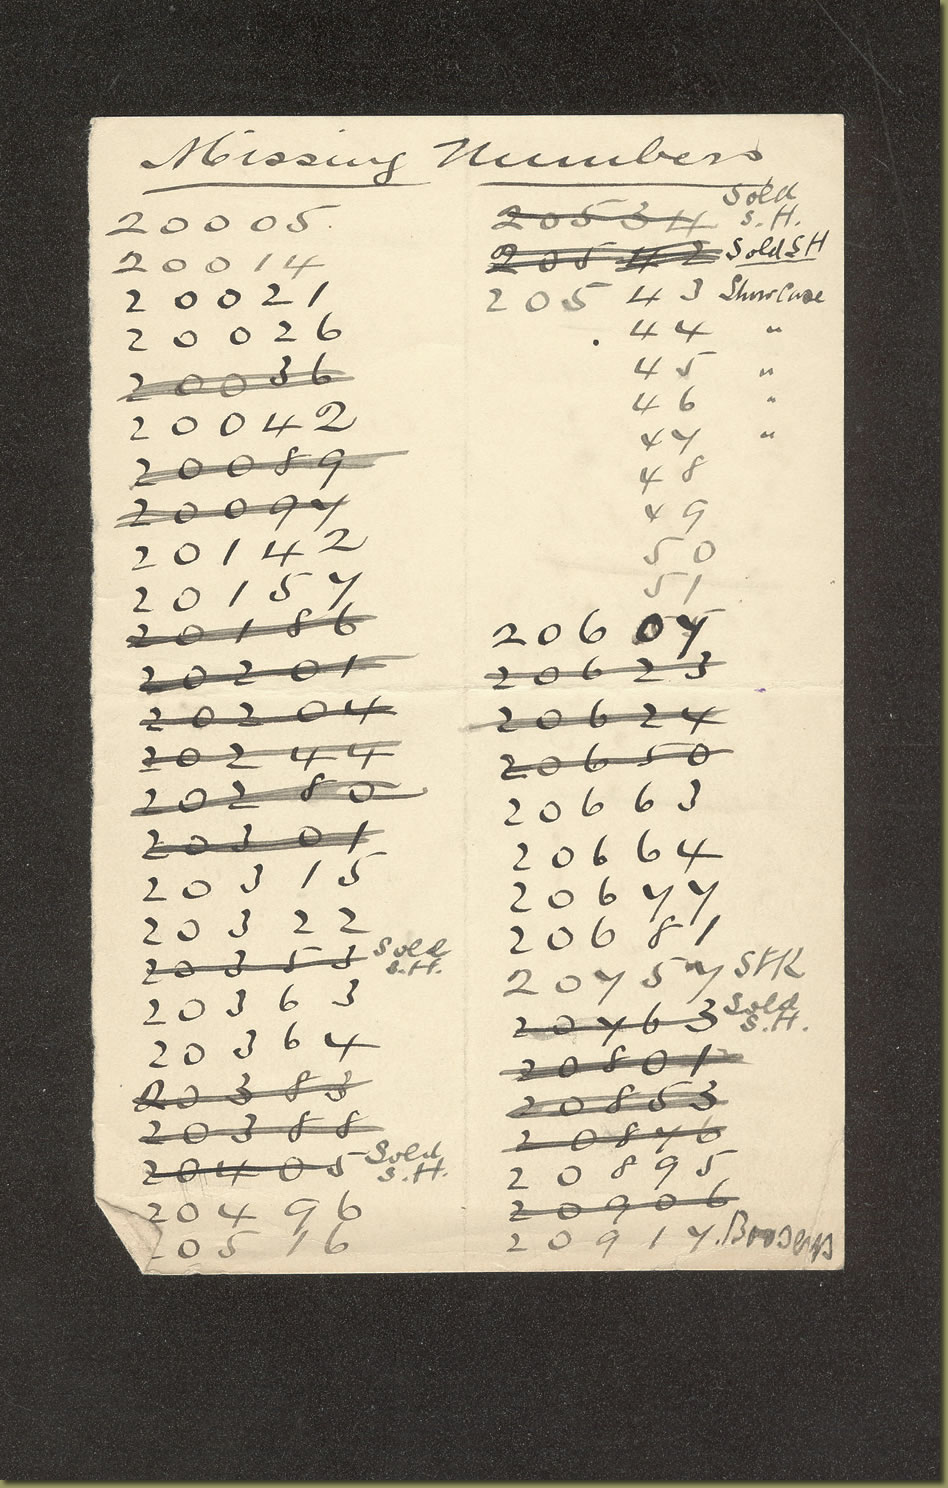 Missing Numbers
20005.
20014
20021
20026
20036
20042
20089
20097
20142
20157
20186
20201
20204
20244
20280
20301
20315
20322
20353 Sold S.H.
20363
20364
20383
20388
20405 Sold S.H.
20496
20516
20534 Sold S.H.
20542 Sold SH
20543 Showcase
44 "
45 "
46 "
47 "
48
49
50
51
20607
20623
20624
20650
20663
20664
20677
20681
20757
20763 Sold S.H.
20801
20853
20876
20895
20906
20917. Booseys